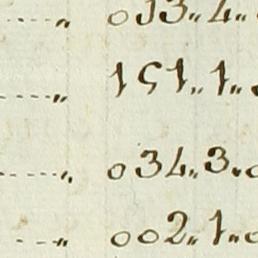 ----„ 013„4„
----„ 151„1„
----„ 034„3„0
----„ 002„1„0